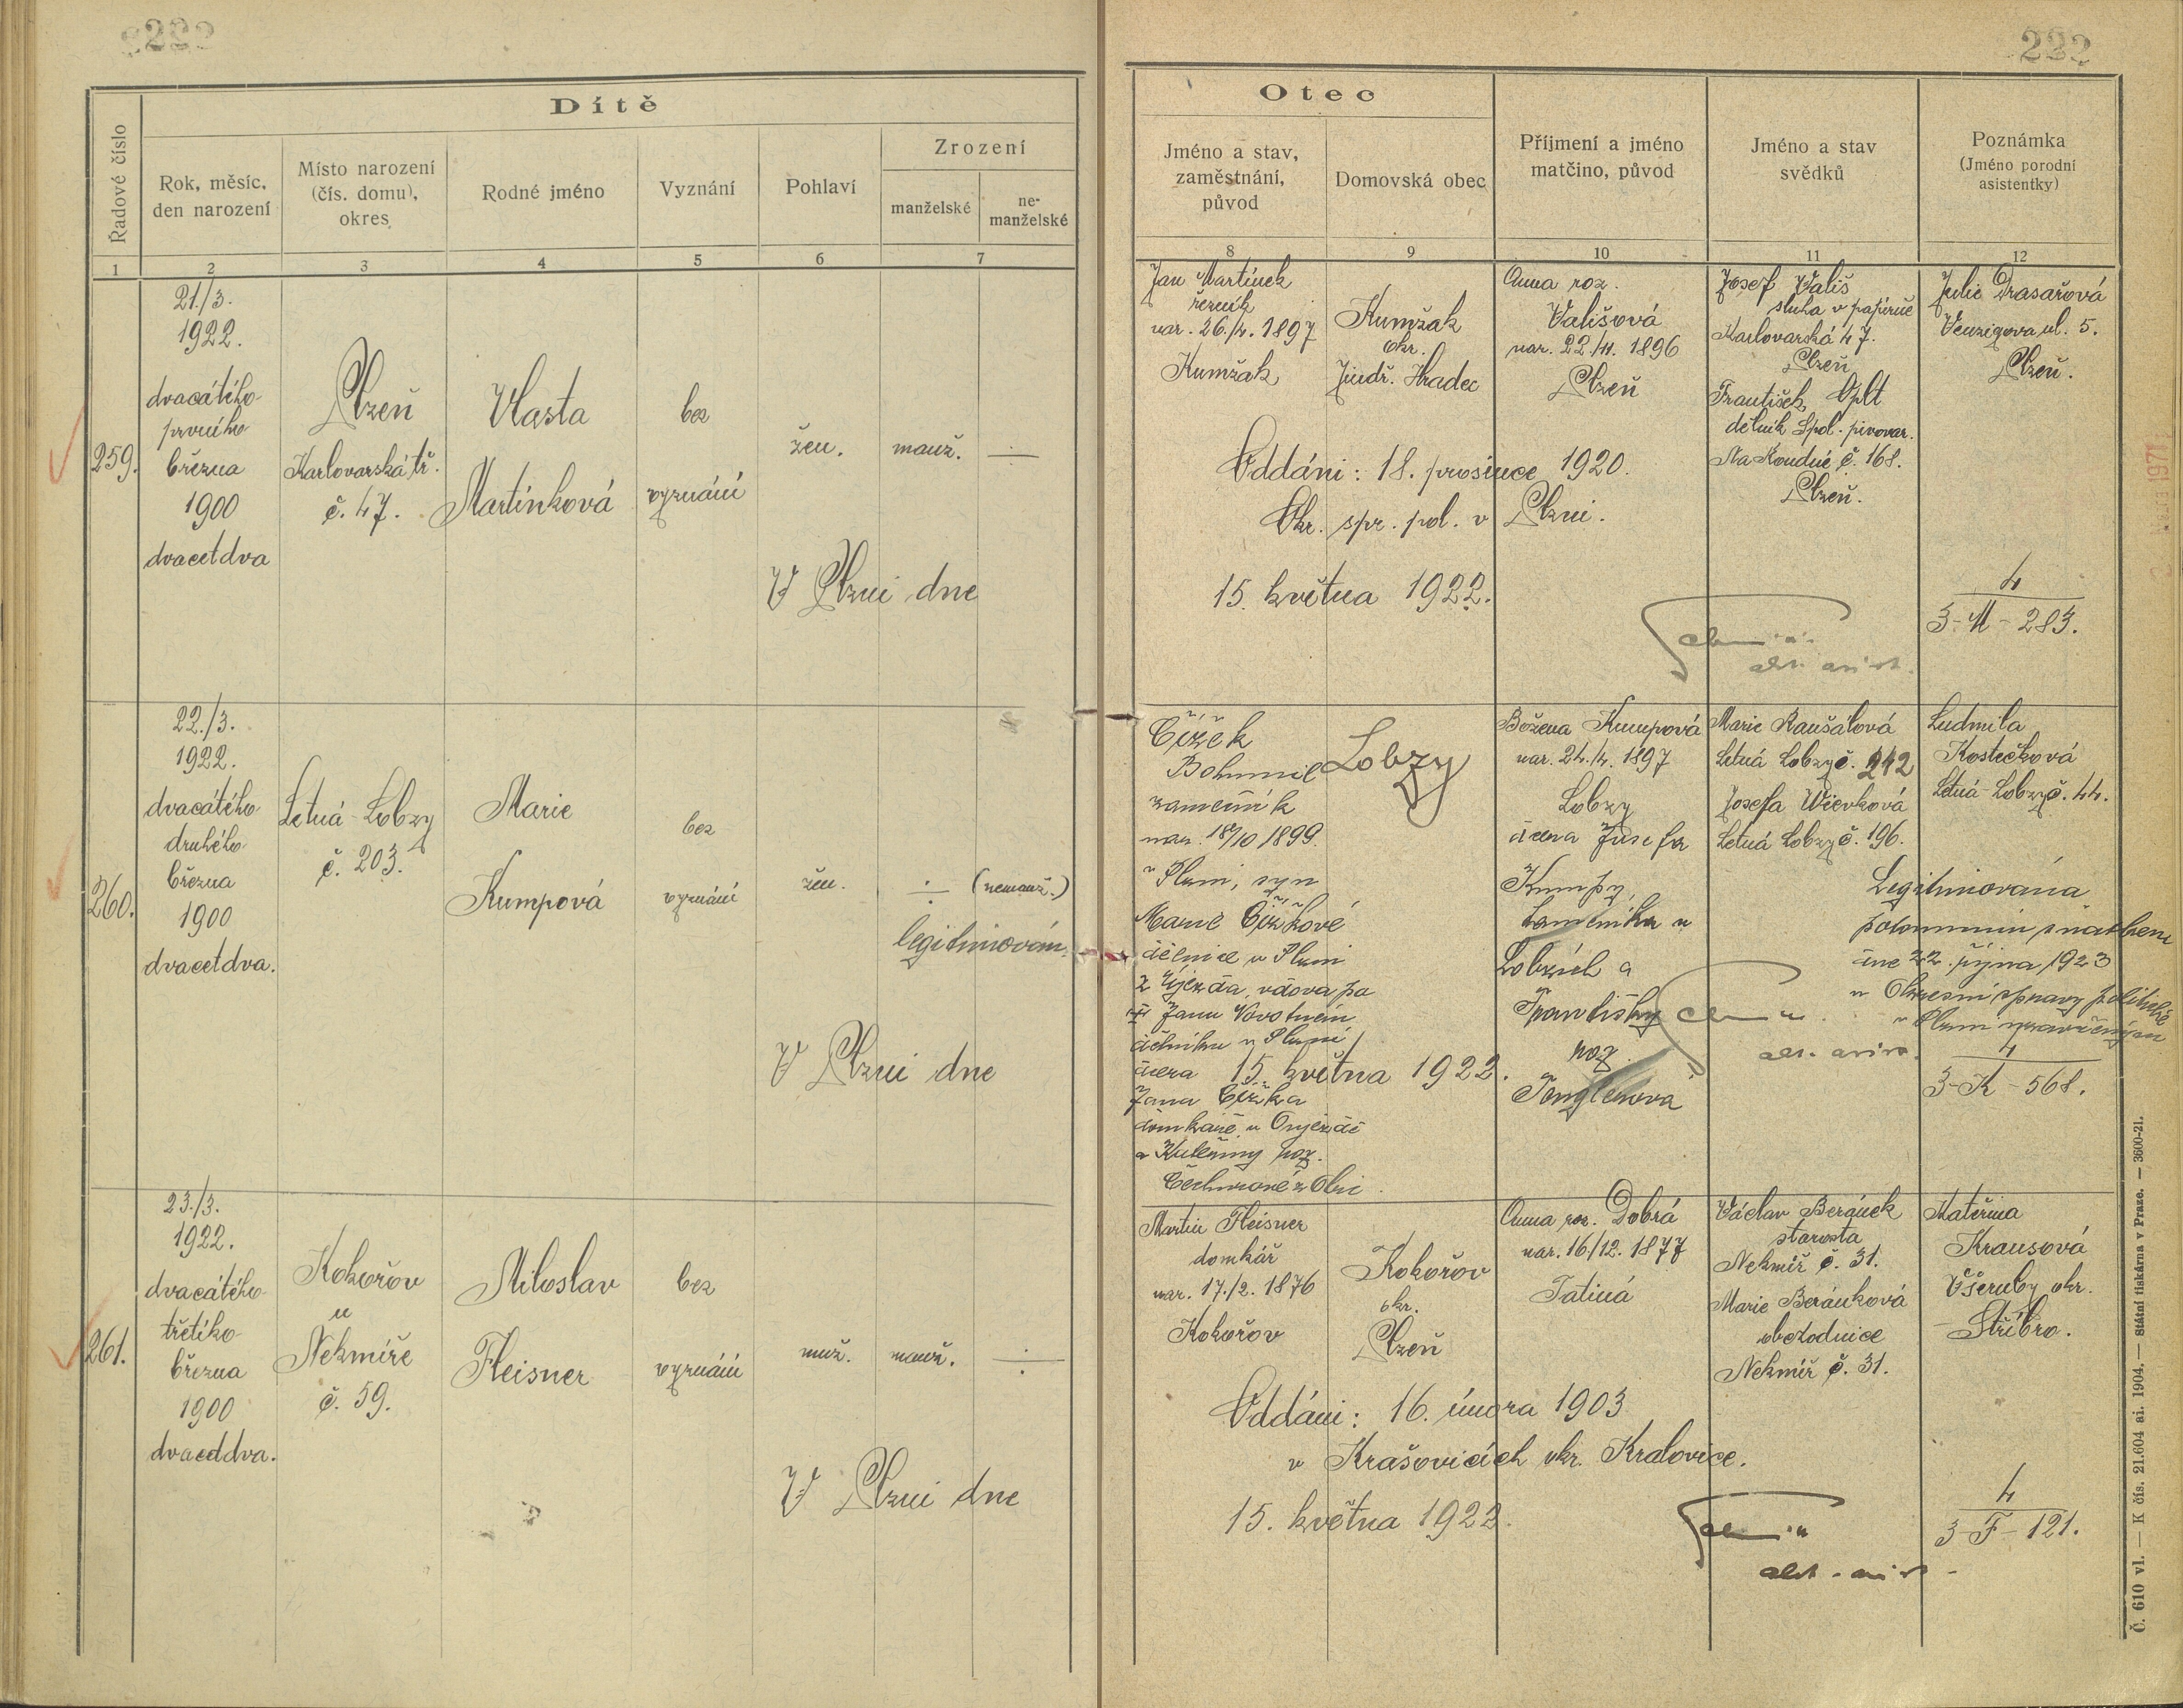 222
222
Dítě
Řadové číslo
Rok, měsíc,
den narození
Místo narození
(čís. domu),
okres
Rodné jméno
Vyznání
Pohlaví
Zrození
manželské
ne-
manželské
1
2
3
4
5
6
7
Otec
Jméno a stav,
zaměstnání,
původ
Domovská obec
Příjmení a jméno
matčino, původ
Jméno a stav
svědků
Poznámka
(Jméno porodní
asistentky)
8
9
10
11
12
259.
21./3.
1922.
dvacátého
prvního
března
1900
dvacetdva
Plzeň
Karlovarská tř.
č. 47.
Vlasta
Martínková
bez
vyznání
žen.
manž.
V Plzni dne
Jan Martínek
řezník
nar. 26./4. 1897
Kumžak
Kumžak
okr.
Jindř. Hradec
Anna roz.
Vališová
nar. 22/11. 1896
Plzeň
Josef Vališ
sluha v papírně
Karlovarská 47.
Plzeň
František Oplt
dělník Spol. pivovar.
Na Roudné č. 168.
Plzeň.
Julie Drasařová
Wenzigova ul. 5.
Plzeň.
Oddáni: 18. prosince 1920.
Okr. spr. pol. v Plzni.
15. května 1922.
4
3-M-283.
260.
22./3.
1922.
dvacátého
druhého
března
1900
dvacetdva.
Letná-Lobzy
č. 203.
Marie
Kumpová
bez
vyznání
žen.
(nemanž.)
legitimován.
V Plzni dne
Čížek
Bohumil
zámečník
nar. 18/10 1899.
v Plzni, syn
Marie Čížkové
dělnice v Plzni
z Újezda, vdova po
Janu Novotném
dělníku v Plzni
dcera
Jana Čížka
domkáře v Oujezdě
a Kateřiny roz.
Lobzy
15. května 1922.
Božena Kumpová
nar. 24./4. 1897
Lobzy
dcera Josefa
Kumpy,
kameníka v
Lobzích a
Františky
roz.
Marie Raušálová
Letná Lobzy č. 242
Josefa Wievková
Letná Lobzy č. 196.
Ludmila
Kostečková
Letná-Lobzy č. 44.
Legitimována
dne 22. října 1923
u Okresní správy politické
v Plzni
4
3-K-568.
261.
23./3.
1922.
dvacátého
třetího
března
1900
dvacetdva.
Kokořov
u
Nekmíře
č. 59.
Miloslav
Fleisner
bez
vyznání
muž.
manž.
V Plzni dne
Martin Fleisner
domkář
nar. 17./2. 1876
Kokořov
Kokořov
okr.
Plzeň
Anna roz. Dobrá
nar. 16/12. 1877
Tatiná
Václav Beránek
starosta
Nekmíř č. 31.
Marie Beránková
obchodnice
Nekmíř č. 31.
Kateřina
Krausová
Všeruby okr.
Stříbro.
Oddáni: 16. února 1903
v Krašovicích okr. Kralovice.
15. května 1922.
4
3-F-121.
Č. 610 vl. — K čís. 21.604 ai. 1904. — Státní tiskárna v Praze. — 3600-21.